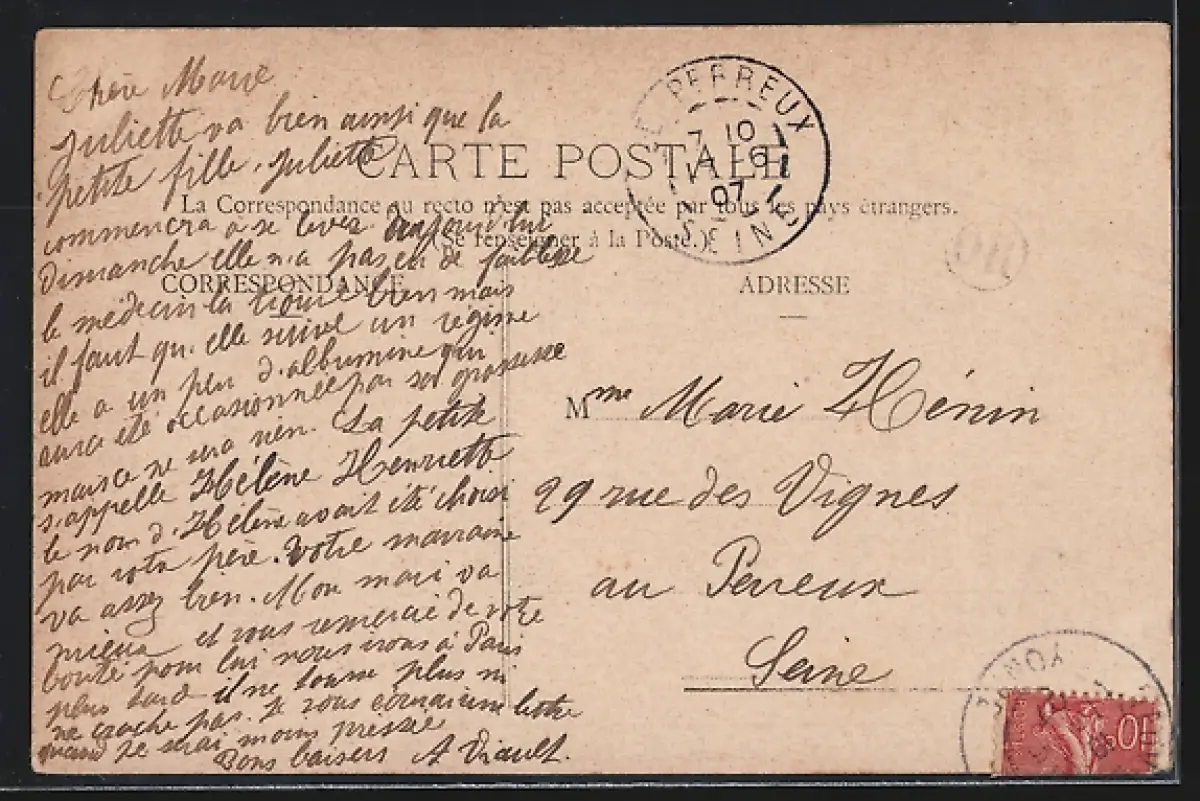 Chère Marie
Juliette va bien ainsi que la
petite fille. Juliette
commencra a se lever aujourd'hui
dimanche elle n'a pas eu de faiblesse
le médecin la trouve bien mais
il faut qu'elle suive un régime
elle a un peu d'albumine qui
aura été occasionnée par sa grossesse
mais ce ne sera rien. La petite
s'appelle Hélène Henriette
le nom d'Hélène avait été choisi
par votre père. Votre marraine
va assez bien. Mon mari va
mieux et vous remercie de votre
bonté pour lui nous irons à Paris
plus tard il ne tousse plus ni
ne crache pas. Je vous écrirai une lettre
quand je serai moins pressée
Bons baisers A Viault.
CARTE POSTALE
La Correspondance au recto n'est pas acceptée par tous les pays étrangers.
(Se renseigner à la Poste.)
CORRESPONDANCE
ADRESSE
LE PERREUX
7 10
14 6
07
SEINE
Mme Marie Hénin
29 rue des Vignes
au Perreux
Seine
YONNE
10